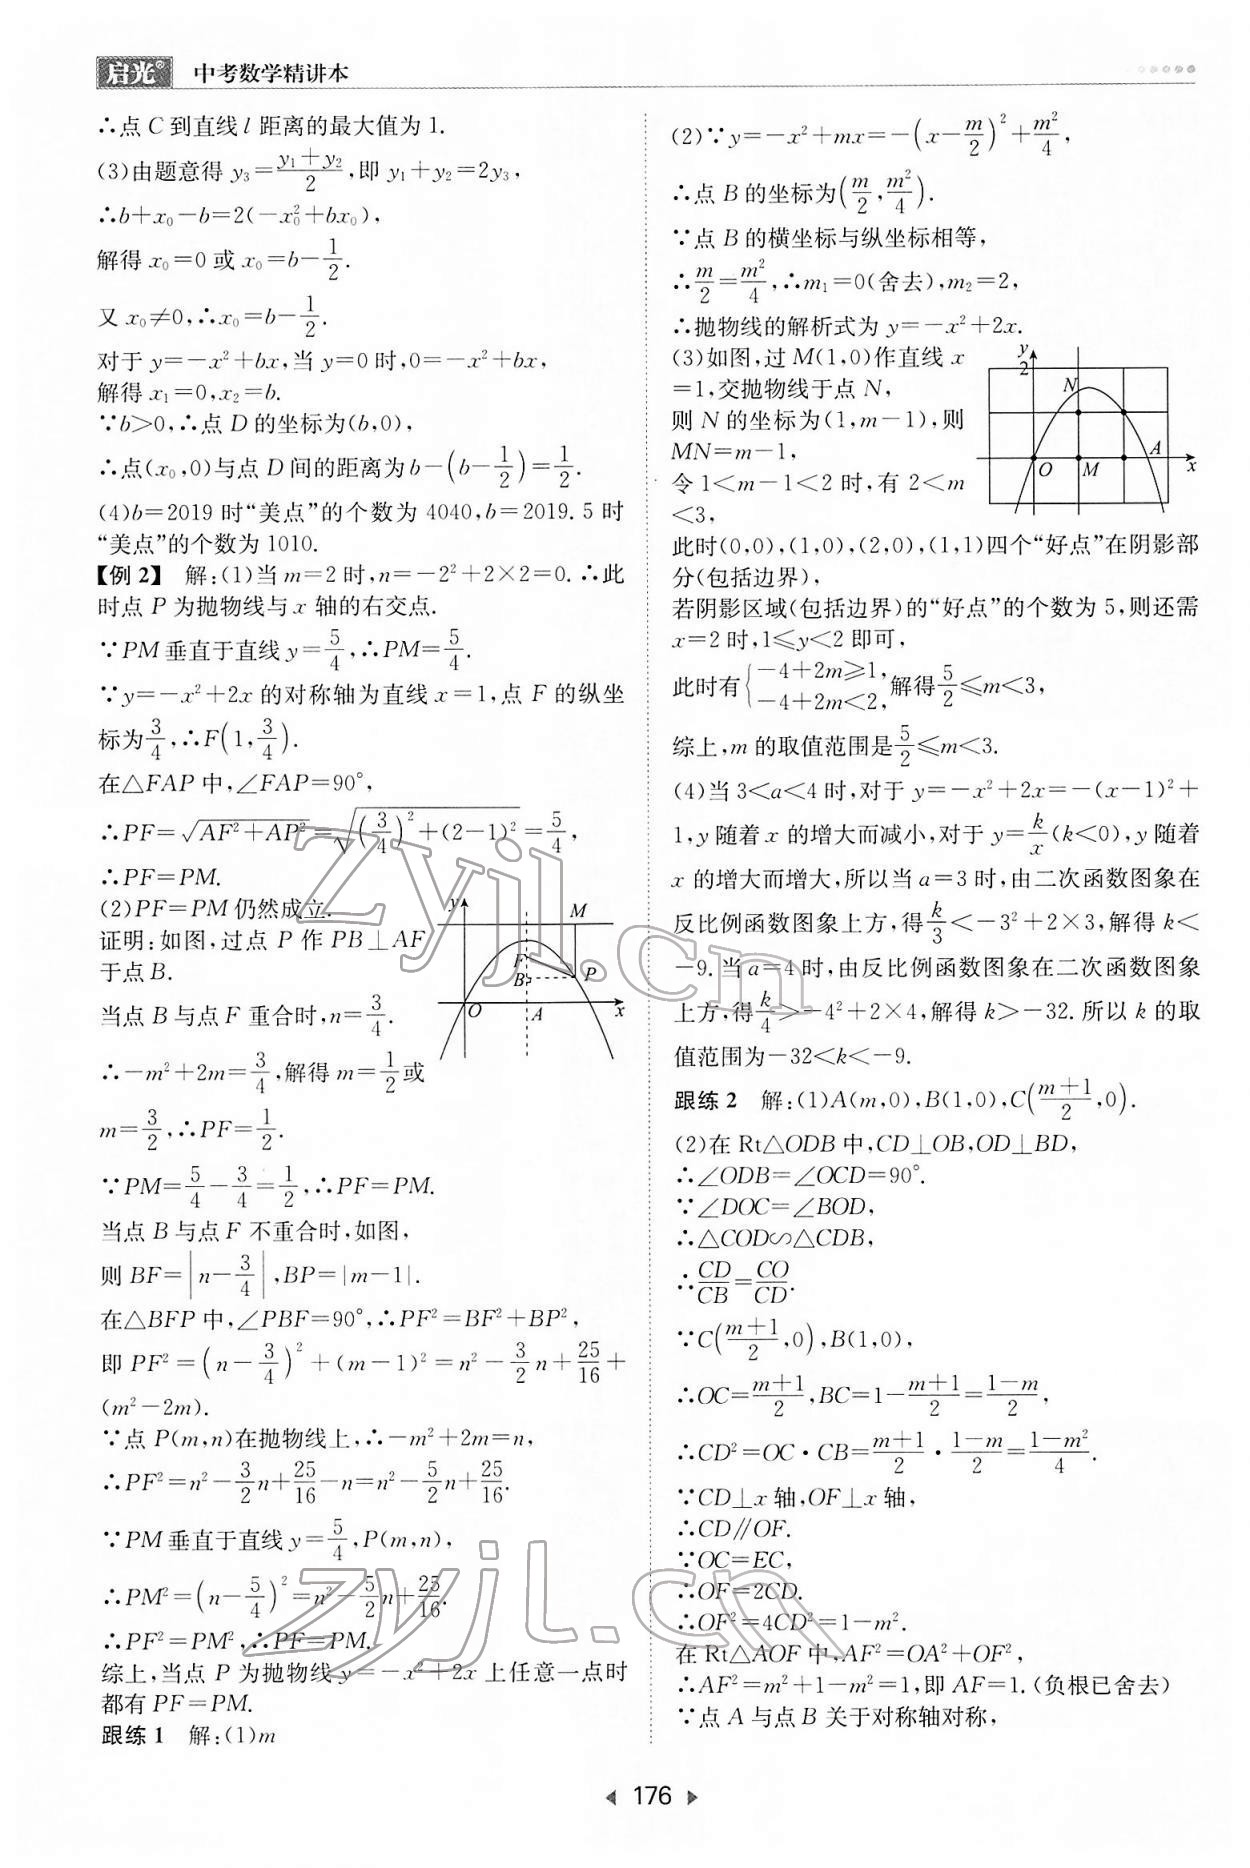 启光® 中考数学精讲本
∴点 C 到直线 l 距离的最大值为 1.
(3)由题意得 y₃=(y₁+y₂)/2,即 y₁+y₂=2y₃,
∴b+x₀-b=2(-x₀²+bx₀),
解得 x₀=0 或 x₀=b-1/2.
又 x₀≠0,∴x₀=b-1/2.
对于 y=-x²+bx,当 y=0 时,0=-x²+bx,
解得 x₁=0,x₂=b.
∵b>0,∴点 D 的坐标为(b,0),
∴点(x₀,0)与点 D 间的距离为 b-(b-1/2)=1/2.
(4)b=2019 时“美点”的个数为 4040,b=2019.5 时
“美点”的个数为 1010.
【例 2】 解:(1)当 m=2 时,n=-2²+2×2=0.∴此
时点 P 为抛物线与 x 轴的右交点.
∵PM 垂直于直线 y=5/4,∴PM=5/4.
∵y=-x²+2x 的对称轴为直线 x=1,点 F 的纵坐
标为3/4,∴F(1,3/4).
在△FAP 中,∠FAP=90°,
∴PF=√(AF²+AP²)=√((3/4)²+(2-1)²)=5/4,
∴PF=PM.
(2)PF=PM 仍然成立.
证明:如图,过点 P 作 PB⊥AF
于点 B.
当点 B 与点 F 重合时,n=3/4.
∴-m²+2m=3/4,解得 m=1/2或
m=3/2,∴PF=1/2.
y M F B P O A x
∵PM=5/4-3/4=1/2,∴PF=PM.
当点 B 与点 F 不重合时,如图,
则 BF=|n-3/4|,BP=|m-1|.
在△BFP 中,∠PBF=90°,∴PF²=BF²+BP²,
即 PF²=(n-3/4)²+(m-1)²=n²-3/2n+25/16+
(m²-2m).
∵点 P(m,n)在抛物线上,∴-m²+2m=n,
∴PF²=n²-3/2n+25/16-n=n²-5/2n+25/16.
∵PM 垂直于直线 y=5/4,P(m,n),
∴PM²=(n-5/4)²=n²-5/2n+25/16.
∴PF²=PM²,∴PF=PM.
综上,当点 P 为抛物线 y=-x²+2x 上任意一点时
都有 PF=PM.
跟练 1 解:(1)m
(2)∵y=-x²+mx=-(x-m/2)²+m²/4,
∴点 B 的坐标为(m/2,m²/4).
∵点 B 的横坐标与纵坐标相等,
∴m/2=m²/4,∴m₁=0(舍去),m₂=2,
∴抛物线的解析式为 y=-x²+2x.
(3)如图,过 M(1,0)作直线 x
=1,交抛物线于点 N,
则 N 的坐标为(1,m-1),则
MN=m-1,
令 1<m-1<2 时,有 2<m
<3,
y 2 N O M A x
此时(0,0),(1,0),(2,0),(1,1)四个“好点”在阴影部
分(包括边界),
若阴影区域(包括边界)的“好点”的个数为 5,则还需
x=2 时,1≤y<2 即可,
此时有{-4+2m≥1, -4+2m<2,解得5/2≤m<3,
综上,m 的取值范围是5/2≤m<3.
(4)当 3<a<4 时,对于 y=-x²+2x=-(x-1)²+
1,y 随着 x 的增大而减小,对于 y=k/x(k<0),y 随着
x 的增大而增大,所以当 a=3 时,由二次函数图象在
反比例函数图象上方,得k/3<-3²+2×3,解得 k<
-9.当 a=4 时,由反比例函数图象在二次函数图象
上方,得k/4>-4²+2×4,解得 k>-32.所以 k 的取
值范围为-32<k<-9.
跟练 2 解:(1)A(m,0),B(1,0),C((m+1)/2,0).
(2)在 Rt△ODB 中,CD⊥OB,OD⊥BD,
∴∠ODB=∠OCD=90°.
∵∠DOC=∠BOD,
∴△COD∽△CDB,
∴CD/CB=CO/CD.
∵C((m+1)/2,0),B(1,0),
∴OC=(m+1)/2,BC=1-(m+1)/2=(1-m)/2,
∴CD²=OC·CB=(m+1)/2·(1-m)/2=(1-m²)/4.
∵CD⊥x 轴,OF⊥x 轴,
∴CD∥OF.
∵OC=EC,
∴OF=2CD.
∴OF²=4CD²=1-m².
在 Rt△AOF 中,AF²=OA²+OF²,
∴AF²=m²+1-m²=1,即 AF=1.(负根已舍去)
∵点 A 与点 B 关于对称轴对称,
176
zyjl.cn
zyjl.cn